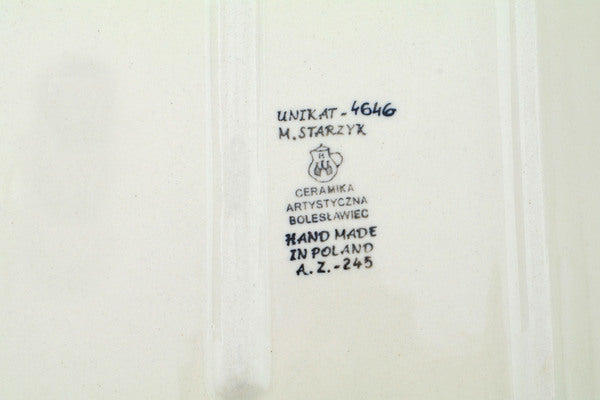 UNIKAT-4646
M. STARZYK
CERAMIKA
ARTYSTYCZNA
BOLESŁAWIEC
HAND MADE
IN POLAND
A.Z.-245